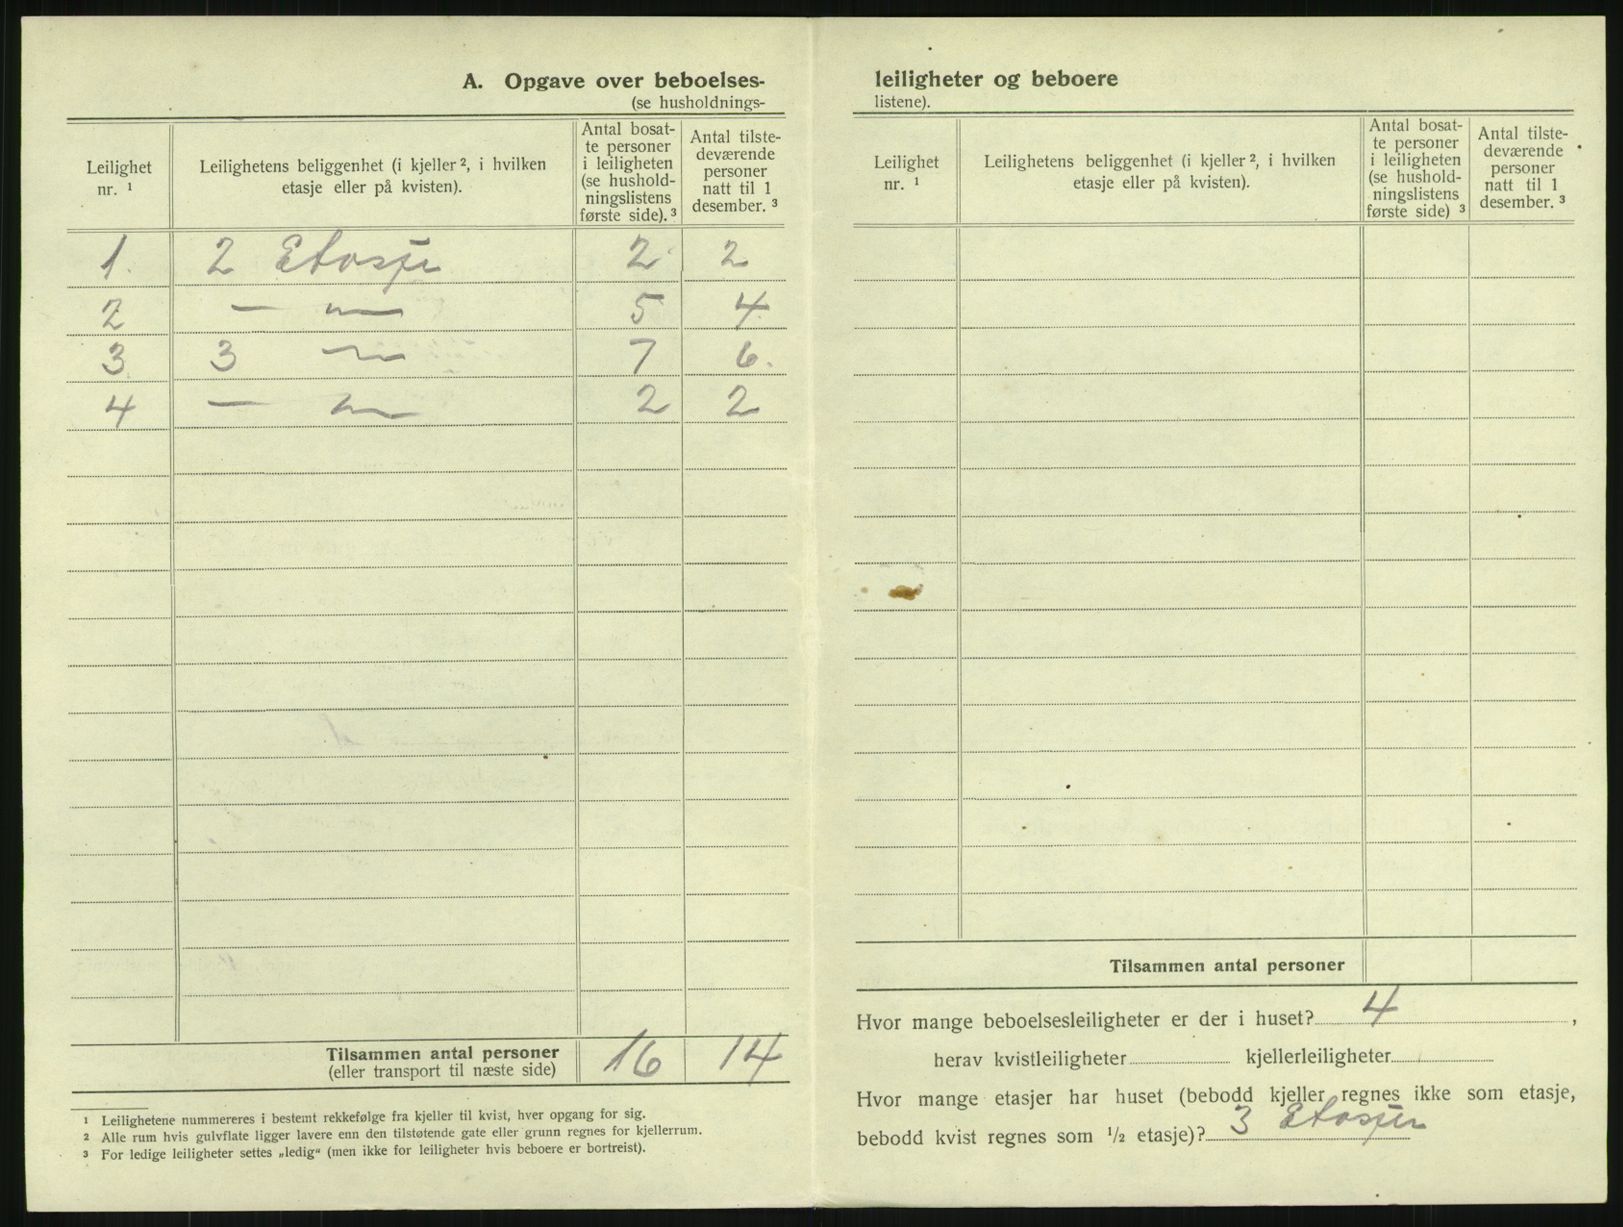 A. Opgave over beboelses-
(se husholdnings-
Leilighet
nr. ¹
Leilighetens beliggenhet (i kjeller ², i hvilken
etasje eller på kvisten).
Antal bosat-
te personer
i leiligheten
(se hushold-
ningslistens
første side). ³
Antal tilste-
deværende
personer
natt til 1
desember. ³
1. 2 Etasje 2 2
2 — — 5 4
3 3 — 7 6.
4 — — 2 2
Tilsammen antal personer 16 14
(eller transport til næste side)
¹ Leilighetene nummereres i bestemt rekkefølge fra kjeller til kvist, hver opgang for sig.
² Alle rum hvis gulvflate ligger lavere enn den tilstøtende gate eller grunn regnes for kjellerrum.
³ For ledige leiligheter settes „ledig“ (men ikke for leiligheter hvis beboere er bortreist).
leiligheter og beboere
listene).
Leilighet
nr. ¹
Leilighetens beliggenhet (i kjeller ², i hvilken
etasje eller på kvisten).
Antal bosat-
te personer
i leiligheten
(se hushold-
ningslistens
første side) ³
Antal tilste-
deværende
personer
natt til 1
desember. ³
Tilsammen antal personer
Hvor mange beboelsesleiligheter er der i huset? 4 ,
herav kvistleiligheter kjellerleiligheter
Hvor mange etasjer har huset (bebodd kjeller regnes ikke som etasje,
bebodd kvist regnes som ½ etasje)? 3 Etasjer